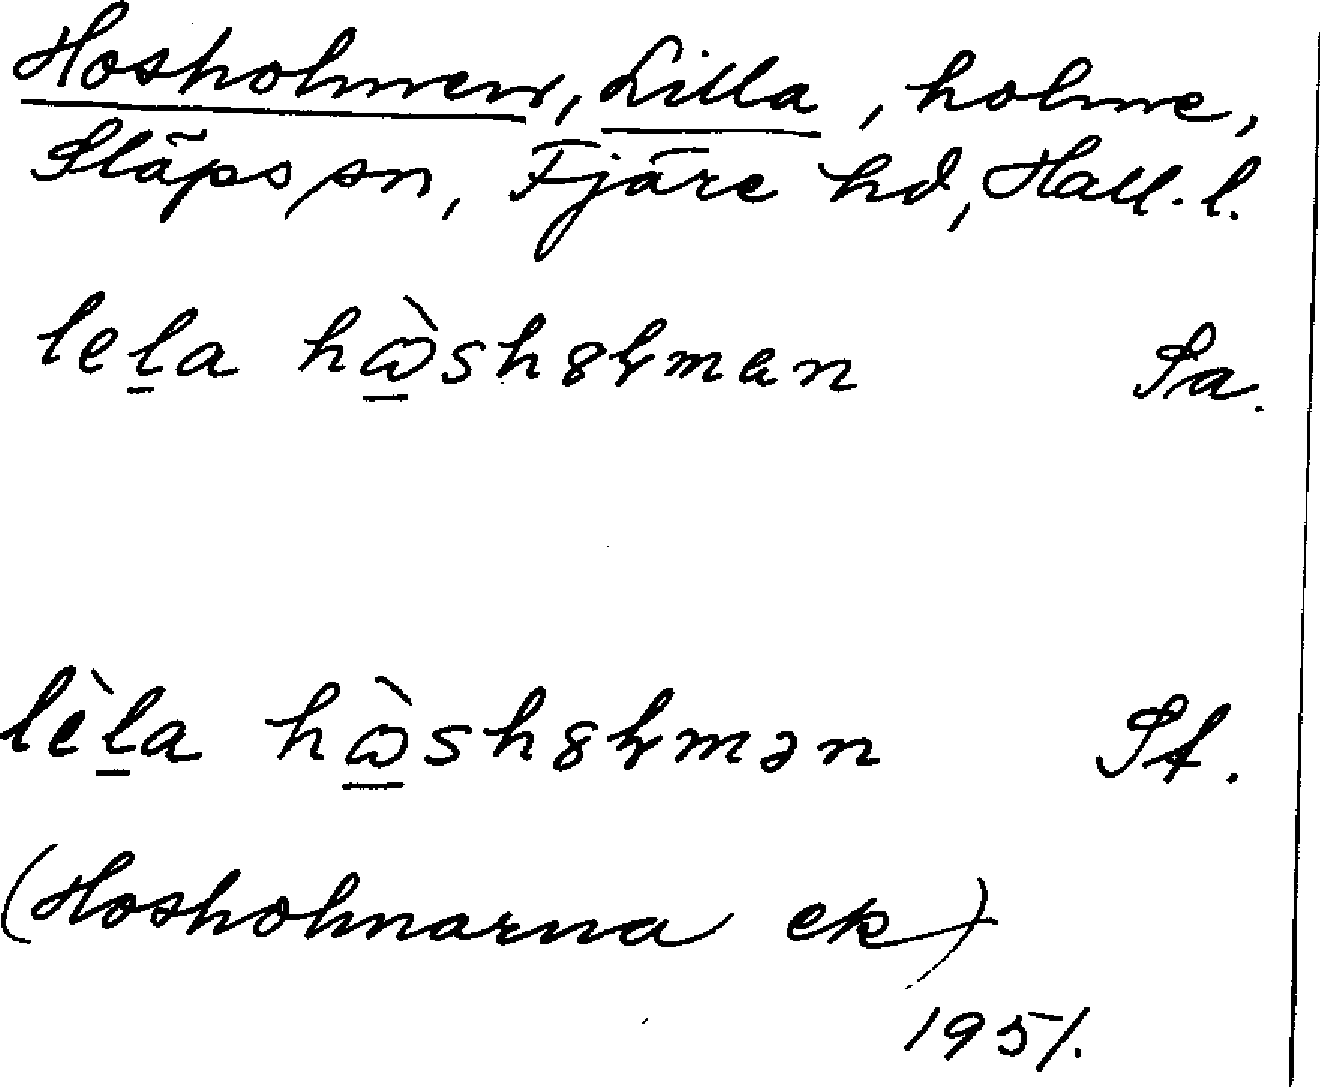 Hosholmen, Lilla, holme,
Släps sn, Fjäre hd, Hall. l.
lel̲a hὼ̲sh8ɫman Sa.
lèl̲a hὼ̲sh8ɫmən St.
(Hosholmarna ek)
1951.